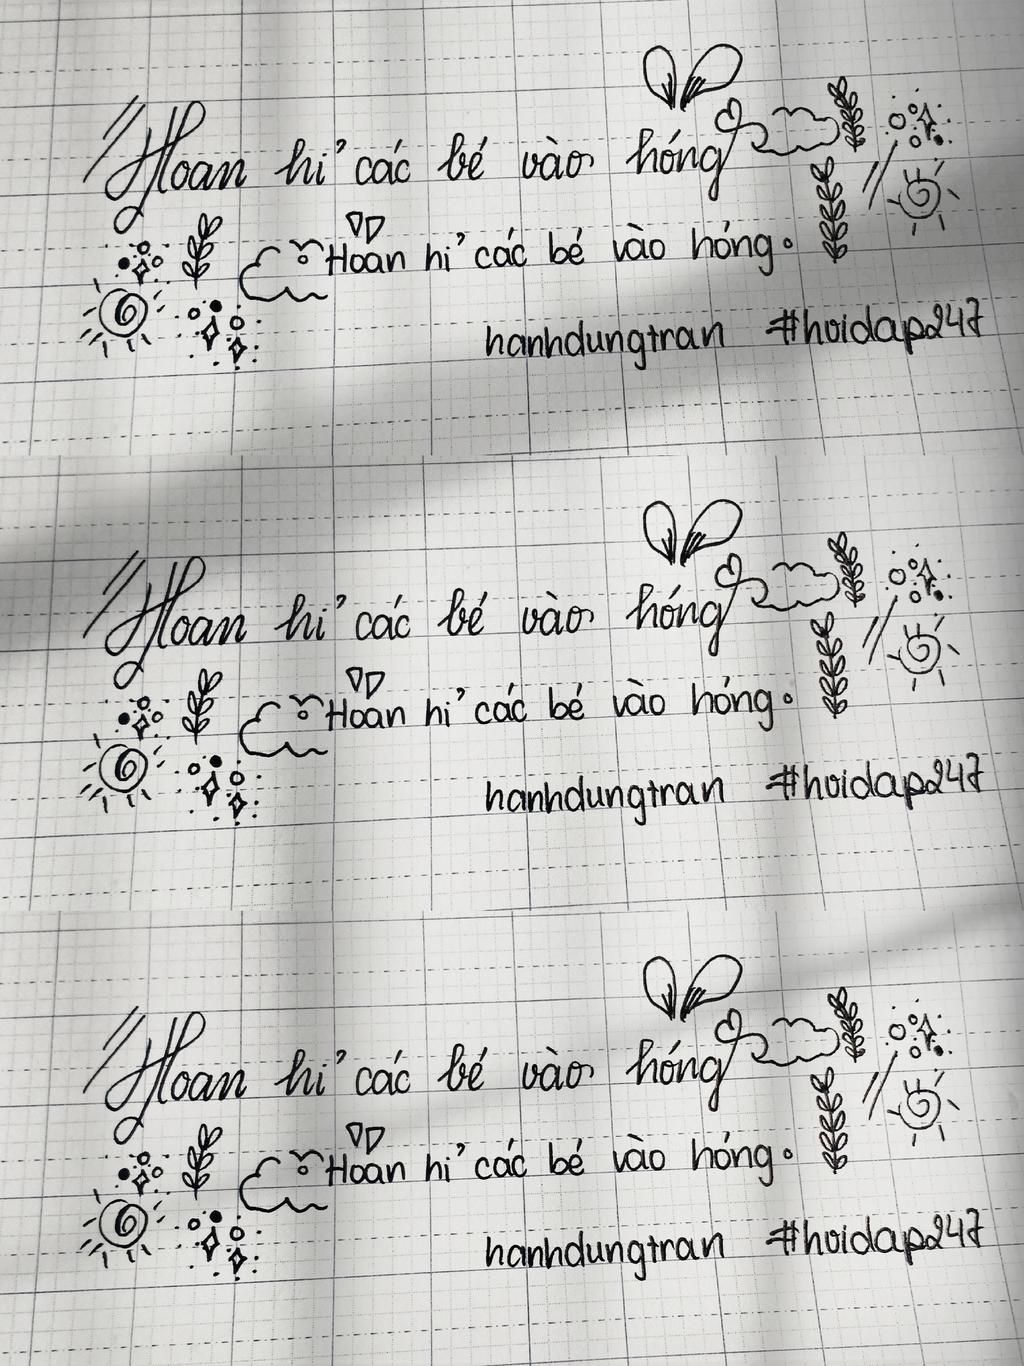 Hoan hỉ các bé vào hóng
Hoan hỉ các bé vào hóng.
hanhdungtran #hoidap247
Hoan hỉ các bé vào hóng
Hoan hỉ các bé vào hóng.
hanhdungtran #hoidap247
Hoan hỉ các bé vào hóng
Hoan hỉ các bé vào hóng.
hanhdungtran #hoidap247